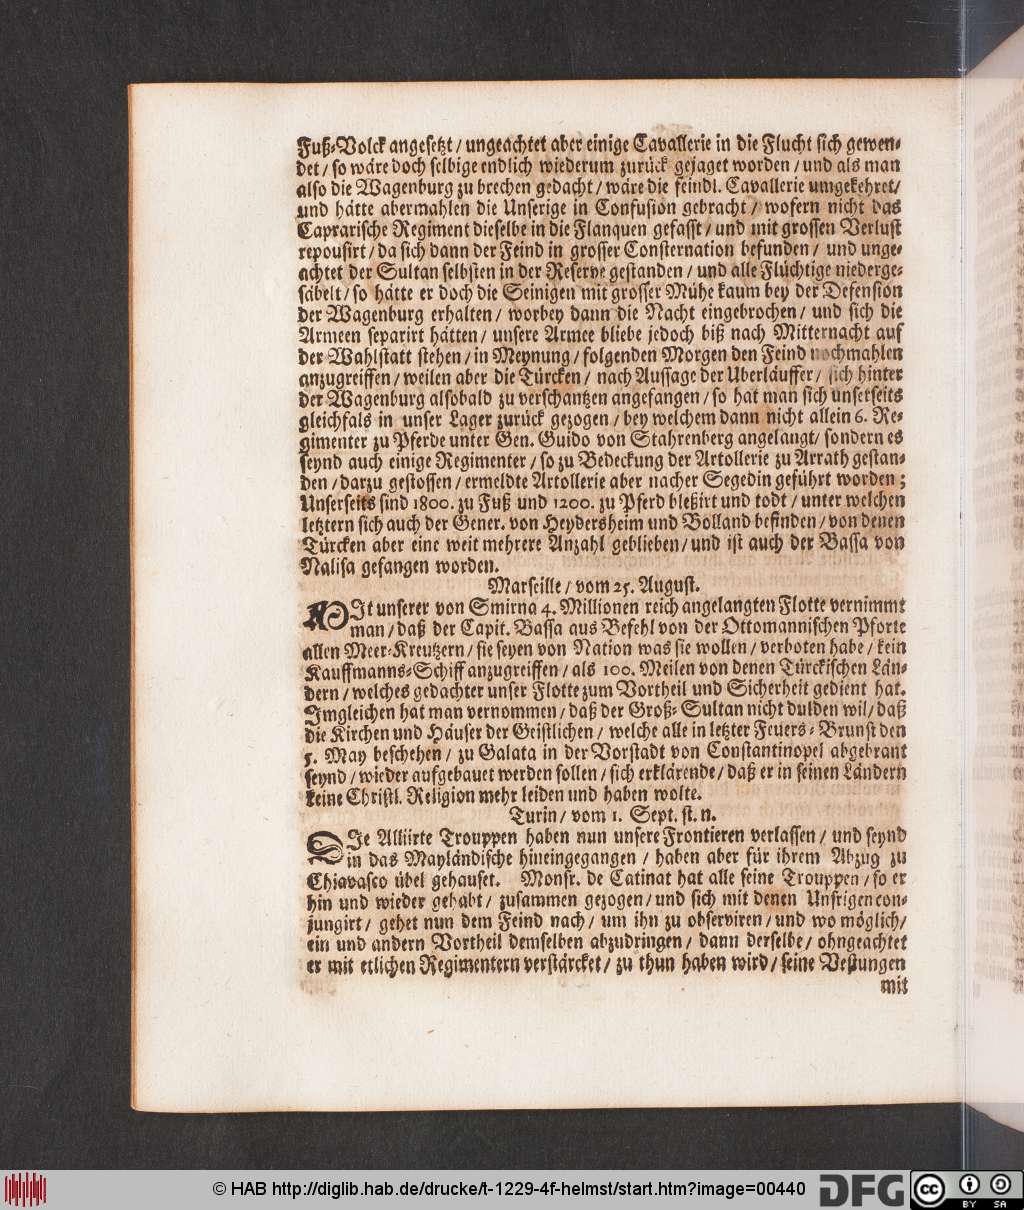 Fuß-Volck angesetzt / ungeachtet aber einige Cavallerie in die Flucht sich gewen-
det / so wäre doch selbige endlich wiederum zurück gejaget worden / und als man
also die Wagenburg zu brechen gedacht / wäre die feindl. Cavallerie umgekehret/
und hätte abermahlen die Unserige in Confusion gebracht / wofern nicht das
Caprarische Regiment dieselbe in die Flanquen gefasst / und mit grossen Verlust
repousirt / da sich dann der Feind in grosser Consternation befunden / und unge-
achtet der Sultan selbsten in der Reserve gestanden / und alle Flüchtige niederge-
säbelt / so hätte er doch die Seinigen mit grosser Mühe kaum bey der Defension
der Wagenburg erhalten / worbey dann die Nacht eingebrochen / und sich die
Armeen separirt hätten / unsere Armee bliebe jedoch biß nach Mitternacht auf
der Wahlstatt stehen / in Meynung / folgenden Morgen den Feind nochmahlen
anzugreiffen / weilen aber die Türcken / nach Aussage der Uberläuffer / sich hinter
der Wagenburg alsobald zu verschantzen angefangen / so hat man sich unserseits
gleichfals in unser Lager zurück gezogen / bey welchem dann nicht allein 6. Re-
gimenter zu Pferde unter Gen. Guido von Stahrenberg angelangt/ sondern es
seynd auch einige Regimenter / so zu Bedeckung der Artollerie zu Arrath gestan-
den / darzu gestossen / ermeldte Artollerie aber nacher Segedin geführt worden ;
Unserseits sind 1800. zu Fuß und 1200. zu Pferd bleßirt und todt / unter welchen
letztern sich auch der Gener. von Heydersheim und Bolland befinden / von denen
Türcken aber eine weit mehrere Anzahl geblieben / und ist auch der Bassa von
Nalisa gefangen worden.
Marseille / vom 25. August.
MIt unserer von Smirna 4. Millionen reich angelangten Flotte vernimmt
man / daß der Capit. Bassa aus Befehl von der Ottomannischen Pforte
allen Meer-Kreutzern / sie seyen von Nation was sie wollen / verboten habe / kein
Kauffmanns-Schiff anzugreiffen / als 100. Meilen von denen Türckischen Län-
dern / welches gedachter unser Flotte zum Vortheil und Sicherheit gedient hat.
Imgleichen hat man vernommen / daß der Groß-Sultan nicht dulden wil / daß
die Kirchen und Häuser der Geistlichen / welche alle in letzter Feuers-Brunst den
5. May beschehen / zu Galata in der Vorstadt von Constantinopel abgebrant
seynd / wieder aufgebauet werden sollen / sich erklärende / daß er in seinen Ländern
keine Christl. Religion mehr leiden und haben wolte.
Turin / vom 1. Sept. st. n.
DIe Alliirte Trouppen haben nun unsere Frontieren verlassen / und seynd
in das Mayländische hineingegangen / haben aber für ihrem Abzug zu
Chiavasco übel gehauset. Monsr. de Catinat hat alle seine Trouppen / so er
hin und wieder gehabt / zusammen gezogen / und sich mit denen Unsrigen con-
jungirt / gehet nun dem Feind nach / um ihn zu observiren / und wo möglich/
ein und andern Vortheil demselben abzudringen / dann derselbe / ohngeachtet
er mit etlichen Regimentern verstärcket / zu thun haben wird / seine Vestungen
mit
© HAB http://diglib.hab.de/drucke/t-1229-4f-helmst/start.htm?image=00440
DFG
cc BY SA